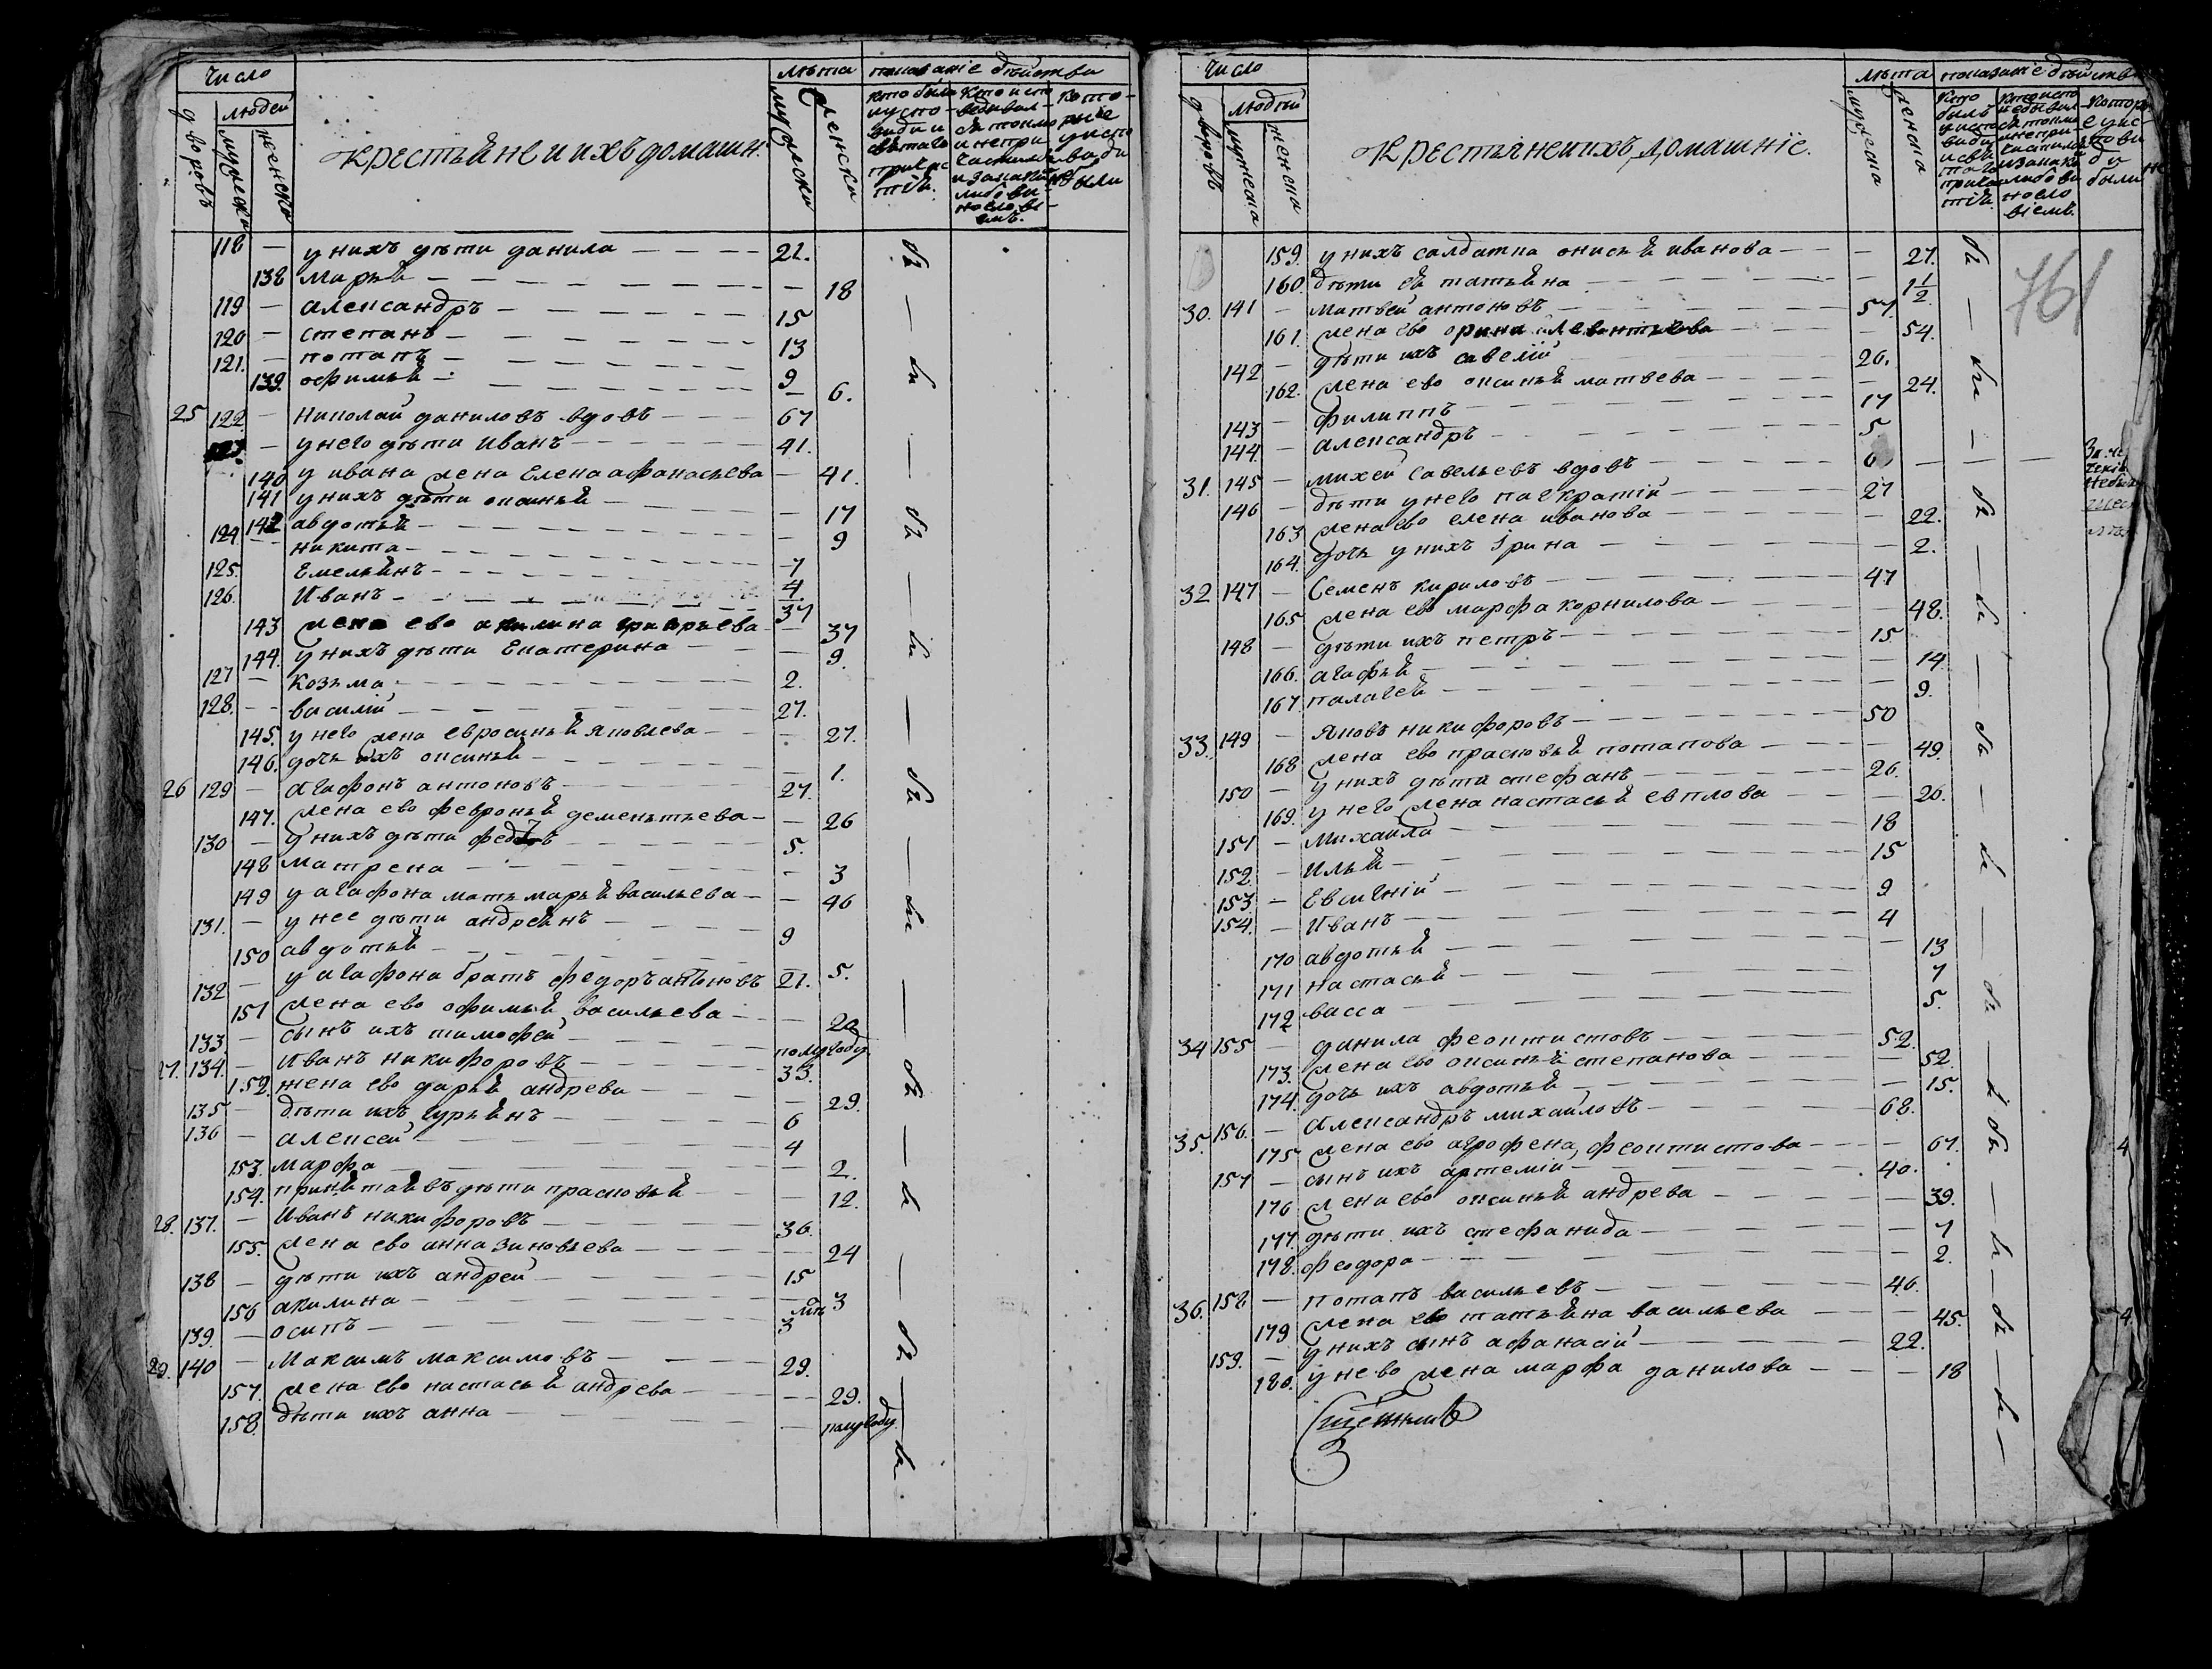 Число
лѣта показаніе дѣйства
дворовъ
людей
мужеска
женска
крестьяне и ихъ домашн:
мужеска
женска
кто былъ
у испо-
види и
святаго
причас
тія.
кто испо
ведывал-
ся токмо
и непри
частился
и за какой
либо ви-
нословi-
емъ.
кото-
рые
у испо
ведi
не были
118 — у нихъ дѣти данила — — — — 21. бы
138 марья — — — — — 18
119 — александръ — — — — 15
120 — степанъ — — — — 13
121. — потапъ — — — — 9
139. офимья — — — — — 6.
25 122 — николай даниловъ вдовъ — — — 67
123 — у него дѣти иванъ — — — 41.
140 у ивана жена елена афанасьева — 41.
141 у нихъ дѣти оксинья — — — 17
142 авдотья — — — — 9
124 — никита — — — — 7
125. емельянъ — — — — 4.
126. иванъ — — — — 37
143 жена ево акилина григорьева — 37
144. у нихъ дѣти екатерина — — 9.
127 — козьма — — — — 2.
128. — василій — — — — 27.
145. у него жена евросинья яковлева — — 27.
146. дочь ихъ оксинья — — — 1.
26 129 — агафонъ антоновъ — — — 27.
147. жена ево февронья дементьева — — 26
130 — у нихъ дѣти федотъ — — — 5.
148 матрена — — — — 3
149 у агафона мать марья васильева — — 46
131. — у нее дѣти андреянъ — — — 9
150 авдотья — — — — 5.
132 — у агафона братъ федоръ антоновъ 21.
151 жена ево офимья васильева — — 20
133 — сынъ ихъ тимофей — — полугоду
27. 134. — иванъ никифоровъ — — — 33.
152. жена ево дарья андрева — — — 29.
135 — дѣти ихъ гурьянъ — — — 6
136 — алексей — — — — 4
153. марфа — — — — 2.
154. приемтаевъ дѣти прасковья — — — 12.
28. 137. — иванъ никифоровъ — — — 36.
155. жена ево анна зиновьева — — — 24
138 — дѣти ихъ андрей — — — 15
156 акилина — — — — 3
139. — осипъ — — — — 3
29. 140 — максимъ максимовъ — — — 29.
157. жена ево настасья андрева — — — 29.
158. дѣти ихъ анна — — — полугоду
Число
лѣта показаніе дѣйств
дворовъ
людей
мужеска
женска
Крестьяне и ихъ домашніе.
мужеска
женска
кто
былъ
у испо
види
и свя
таго
причас
тія.
кто испо
ведывал
ся токмо
и непри-
частился
и за какой
либо ви
носло
віемъ.
котор
е у ис
пови
ди
были не
761
159. у нихъ салдатка онисья иванова — — — 27. бы
160. дѣти ея татьяна — — — 1 1/2
30. 141 — матвей антоновъ — — — 57.
161. жена ево орина левонтьева — — 54.
142 — дѣти ихъ савелій — — — 26.
162. жена ево оксинья матвева — — — 24.
143 — филиппъ — — — — 17
144. — александръ — — — — 5
31. 145 — михей савельевъ вдовъ — — —
146 — дѣти у него панкратій — — — 27
163 жена ево елена иванова — — — 22.
164. дочь у нихъ ірина — — — 2.
32 147 — семенъ кириловъ — — — 47
165 жена ево марфа корнилова — — — 48.
148 — дѣти ихъ петръ — — — 15
166. агафья — — — — 14
167. палагея — — — — 9.
33. 149 — яковъ никифоровъ — — — 50
168 жена ево прасковья потапова — — — 49.
150 — у нихъ дѣти стефанъ — — — 26.
169. у него жена настасья евплова — — 20.
151 — михаила — — — — 18
152. — илья — — — — 15
153 — евсигній — — — — 9
154. — иванъ — — — — 4
170 авдотья — — — — 13
171 настасья — — — — 7
172 васса — — — — 5.
34 155 — данила феоктистовъ — — — 52.
173. жена ево оксинья степанова — — — 52.
174. дочь ихъ авдотья — — — 15.
35. 156. — александръ михайловъ — — — 68.
175 жена ево агрофена феоктистова — — — 67.
157 — сынъ ихъ артемій — — — 40.
176 жена ево оксинья андрева — — — 39.
177. дѣти ихъ стефанида — — — 7
178. феодора — — — — 2.
36. 158 — потапъ васильевъ — — — 46.
179 жена ево татьяна васильева — — 45.
159. — у нихъ сынъ афанасій — — — 22.
180. у нево жена марфа данилова — — — 18